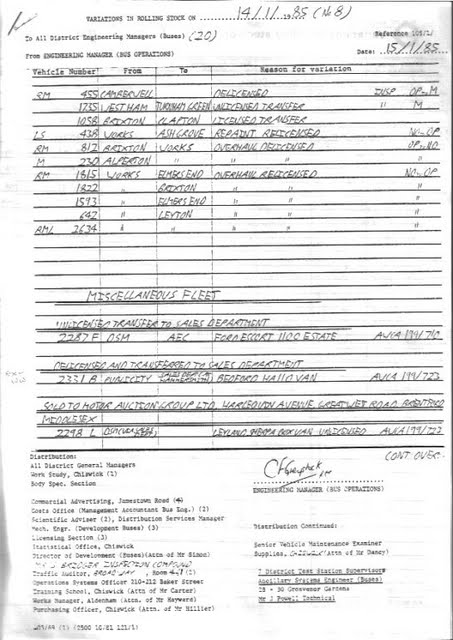 VARIATIONS IN ROLLING STOCK ON 14/11/1985 (No 8)
To All District Engineering Managers (Buses) (20) Reference 105/1/
From ENGINEERING MANAGER (BUS OPERATIONS) Date: 15/11/85
Vehicle Number From To Reason for variation
RM 455 CAMBERWELL DELICENSED INSP OP-M
1735 WEST HAM TURNHAM GREEN UNLICENSED TRANSFER " M
1058 BRIXTON CLAPTON LICENSED TRANSFER
LS 438 WORKS ASH GROVE REPAINT RELICENSED NO-OP
RM 812 BRIXTON WORKS OVERHAUL DELICENSED OP-NO
M 230 ALPERTON " " " "
RM 1815 WORKS ELMERS END OVERHAUL RELICENSED NO-OP
1822 " BRIXTON " " "
1593 " ELMERS END " " "
642 " LEYTON " " "
RML 2634 " " " "
MISCELLANEOUS FLEET
UNLICENSED TRANSFER TO SALES DEPARTMENT
2287 F OSM AEC FORD ESCORT 1100 ESTATE AWCA 199/710
DELICENSED AND TRANSFERRED TO SALES DEPARTMENT
2331 B PUBLICITY SALES DEPT BEDFORD HA110 VAN AWCA 199/723
SOLD TO MOTOR AUCTION GROUP LTD, HARLEQUIN AVENUE, GREAT WEST ROAD, BRENTFORD
MIDDLESEX
2298 L LEYLAND SHERPA BOX VAN UNLICENSED AWCA 199/722
CONT. OVER.
Distribution:
All District General Managers
Work Study, Chiswick (1)
Body Spec. Section
ENGINEERING MANAGER (BUS OPERATIONS)
Commercial Advertising, Jamestown Road
Costs Office (Management Accountant Bus Eng.) (2)
Scientific Adviser (2), Distribution Services Manager
Mech. Engr. (Development Buses) (3)
Licensing Section (3)
Statistical Office, Chiswick
Director of Development (Buses)(Attn of Mr Simon)
Mr J BRIDGER INSPECTION COMPOUND
Traffic Auditor, BROADWAY, Room
Operations Systems Officer 210-212 Baker Street
Training School, Chiswick (Attn of Mr Carter)
Works Manager, Aldenham (Attn. of Mr Hayward)
Purchasing Officer, Chiswick (Attn. of Mr Hillier)
Distribution Continued:
Senior Vehicle Maintenance Examiner
Supplies, CHISWICK (Attn of Mr Dancy)
7 District Task Station Supervisors
Ancillary Systems Engineer (Buses)
28 - 30 Grosvenor Gardens
Mr J Powell Technical